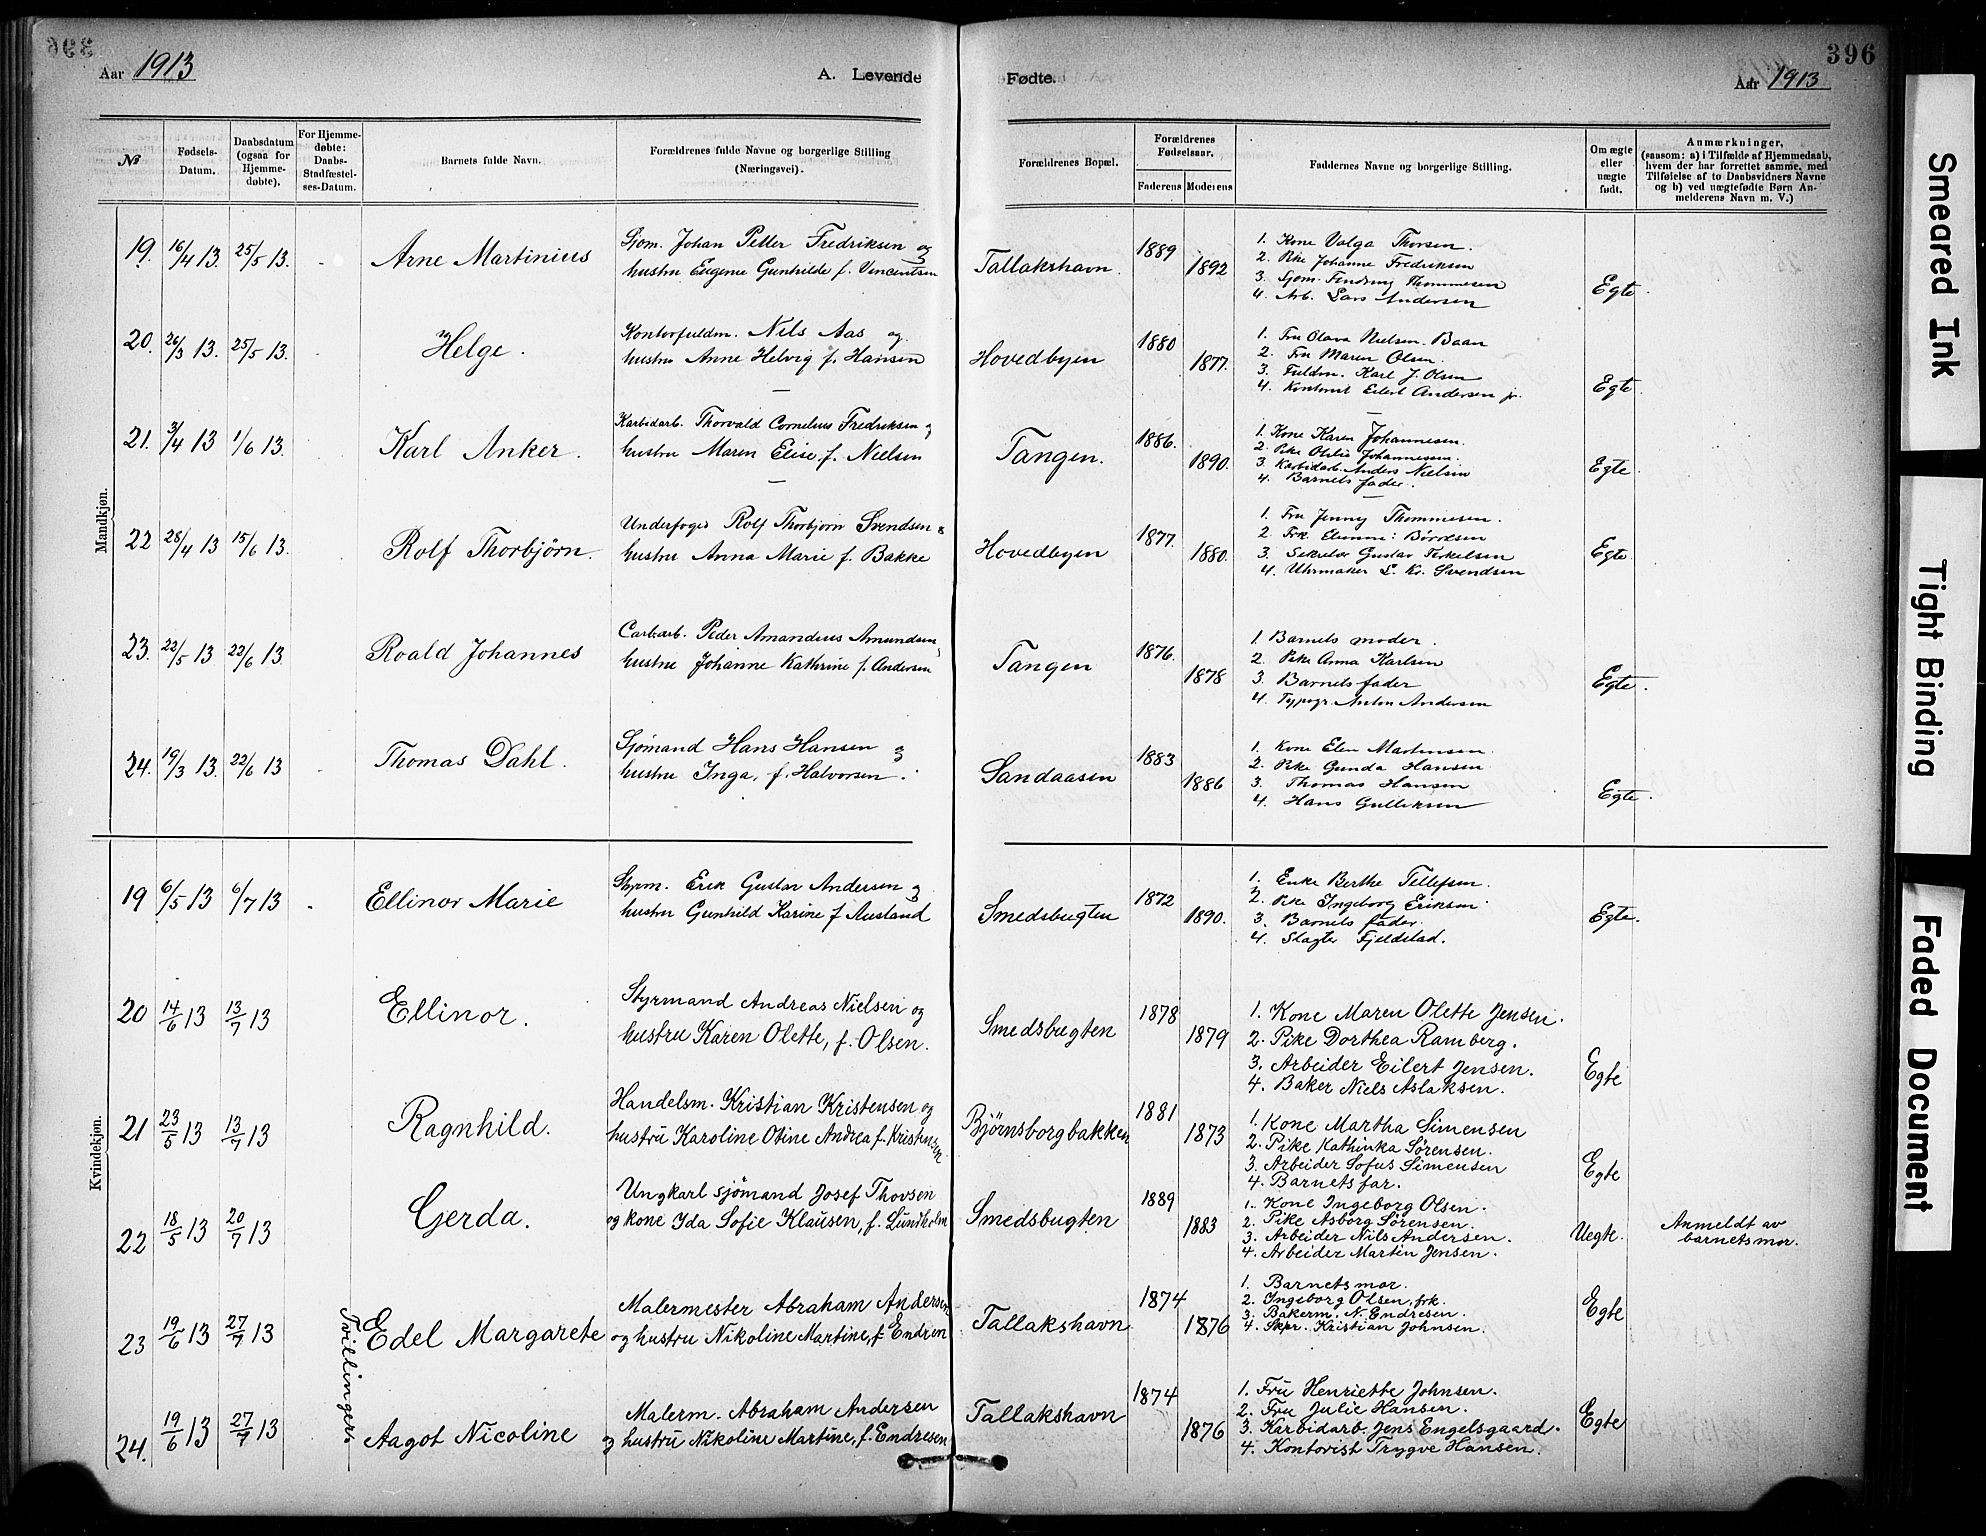 396
Aar 1913
A. Levende Fødte.
Aar 1913
No
Fødsels-Datum.
Daabsdatum (ogsaa for Hjemme-døbte).
For Hjemme-døbte: Daabs-Stadfæstel-ses-Datum.
Barnets fulde Navn.
Forældrenes fulde Navne og borgerlige Stilling (Næringsvei).
Forældrenes Bopæl.
Forældrenes Fødselsaar.
Faderens
Moderens
Faddernes Navne og borgerlige Stilling.
Om ægte eller uægte født.
Anmærkninger,
(saasom: a) i Tilfælde af Hjemmedaab,
hvem der har forrettet samme, med
Tilføielse af to Daabsvidners Navne
og b) ved uægtefødte Børn An-
melderens Navn m. V.)
Mandkjøn.
19. 16/4 13. 25/5 13. Arne Martinius
Sjom. Johan Petter Fredriksen og
hustru Eugenie Gunhilde f. Vincentsen
Tallakshavn 1889 1892
1. Kone Valga Thorsen.
2. Pike Johanne Fredriksen
3. Sjom. Thommesen
4. Arb. Lars Andersen
Egte
20. 26/3 13. 25/5 13. Helge.
Kontorfuldm. Nils Aas og
hustru Anne Helvig f. Hansen
Hovedbyen 1880 1877.
1. Fru Olava Nielsen Baan
2. Fru Maren Olsen.
3. Fuldm. Karl J. Olsen
4. Kontorist Eilert Andersen jr.
Egte
21. 3/4 13 1/6 13. Karl Anker.
Karbidarb. Thorvald Cornelius Fredriksen og
hustru Maren Elise f. Nielsen
Tangen. 1886. 1890.
1. Kone Karen Johannesen.
2. Pike Otilie Johannesen.
3. Karbidarb. Anders Nielsen
4. Barnets fader.
Egte
22 28/4 13 15/6 13. Rolf Thorbjörn.
Underfoged Rolf Thorbjorn Svendsen &
hustru Anna Marie f. Bakke
Hovedbyen 1877. 1880.
1. Fru Jenny Thommesen.
2. Frk. Børresen
3. Sekretær Gustav Terkelsen
4. Uhrmaker L. Kr. Svendsen
Egte
23. 22/5 13 22/6 13. Roald Johannes
Carbarb. Peder Amandus Amundsen,
hustru Johanne Kathrine f. Andersen
Tangen 1876. 1878
1. Barnets moder.
2. Pike Anna Karlsen
3. Barnets fader
4. Typogr. Anton Andersen
Egte.
24. 19/3 13. 22/6 13 Thomas Dahl.
Sjömand Hans Hansen og
hustru Inga, f. Halvorsen.
Sandaasen 1883 1886
1. Kone Elen Martinsen.
2. Pike Gunda Hansen
3. Thomas Hansen
4. Hans Gulliksen
Egte.
Kvindekjøn.
19 6/5 13 6/7 13 Ellinor Marie
Styrm. Erik Gustav Andersen og
hustru Gunhild Karine f Ausland
Smedsbugten 1872 1890.
1. Enke Berthe Tellefsen.
2. Pike Ingeborg Eriksen
3. Barnets fader.
4. Slagter Fjeldstad.
Egte.
20 14/6 13 13/7 13 Ellinor.
Styrmand Andreas Nielsen og
hustru Karen Olette, f. Olsen.
Smedsbugten 1878 1879
1. Kone Maren Olette Jensen.
2. Pike Dorthea Ramberg.
3. Arbeider Eilert Jensen.
4. Baker Niels Aslaksen.
Egte
21 23/5 13 13/7 13 Ragnhild.
Handelsm. Kristian Kristensen og
hustru Karoline Otine Andrea f. Kristensen
Bjørnsborgbakken 1881 1873
1. Kone Martha Simensen
2. Pike Kathinka Sørensen.
3. Arbeider Sofus Simensen
4. Barnets far.
Egte
22 18/5 13 20/7 13 Gerda.
Ungkarl sjömand Josef Thovsen
og kone Ida Sofie Klausen, f. Lundholm
Smedsbugten 1889 1883
1. Kone Ingeborg Olsen.
2. Pike Asborg Sørensen.
3. Arbeider Nils Andersen.
4. Arbeider Martin Jensen.
Uegte.
Anmeldt av
barnets mor.
Tvillinger
23 19/6 13 27/7 13 Edel Margarete
Malermester Abraham Andersen
og hustru Nikoline Martine, f. Endresen
Tallakshavn 1874 1876
1. Barnets mor.
2. Ingeborg Olsen, frk.
3. Bakerm. N. Endresen.
4. Skpr. Kristian Johnsen.
Egte
24. 19/6 13 27/7 13 Aagot Nicoline
Malerm. Abraham Andersen
og hustru Nikoline Martine, f. Endresen
Tallakshavn 1874 1876
1. Fru Henriette Johnsen.
2. Fru Julie Hansen.
3. Karbidarb. Jens Engelsgaard.
4. Kontorist Trygve Hansen.
Egte
Smeared Ink
Tight Binding
Faded Document